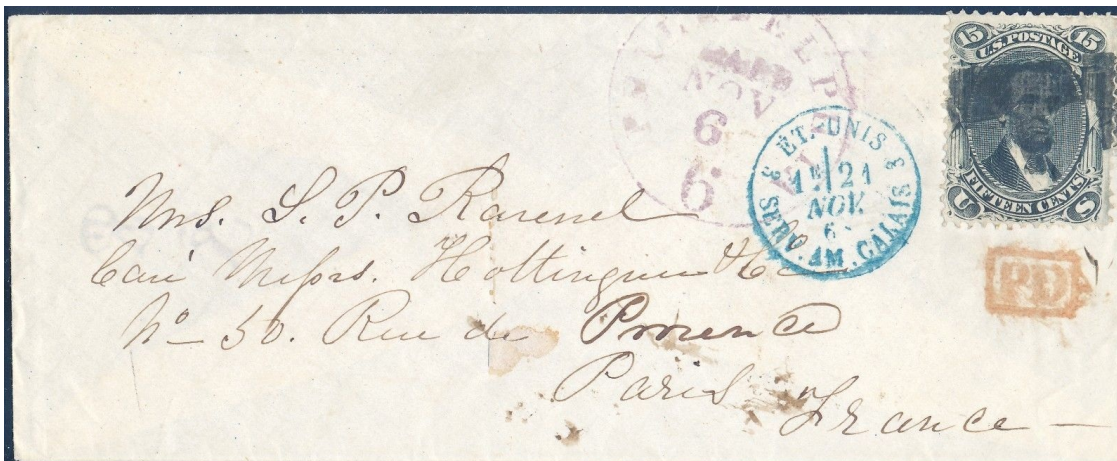 15 15
U.S. POSTAGE
FIFTEEN CENTS
U S
PAID
NOV
6
6
ÉT.-UNIS
21
NOV.
6
SERV. AM. CALAIS
3 3
PD
Mrs. S. P. Ravenel
Care Messrs. Hottinguer & Co
No 50. Rue de Provence
Paris
France